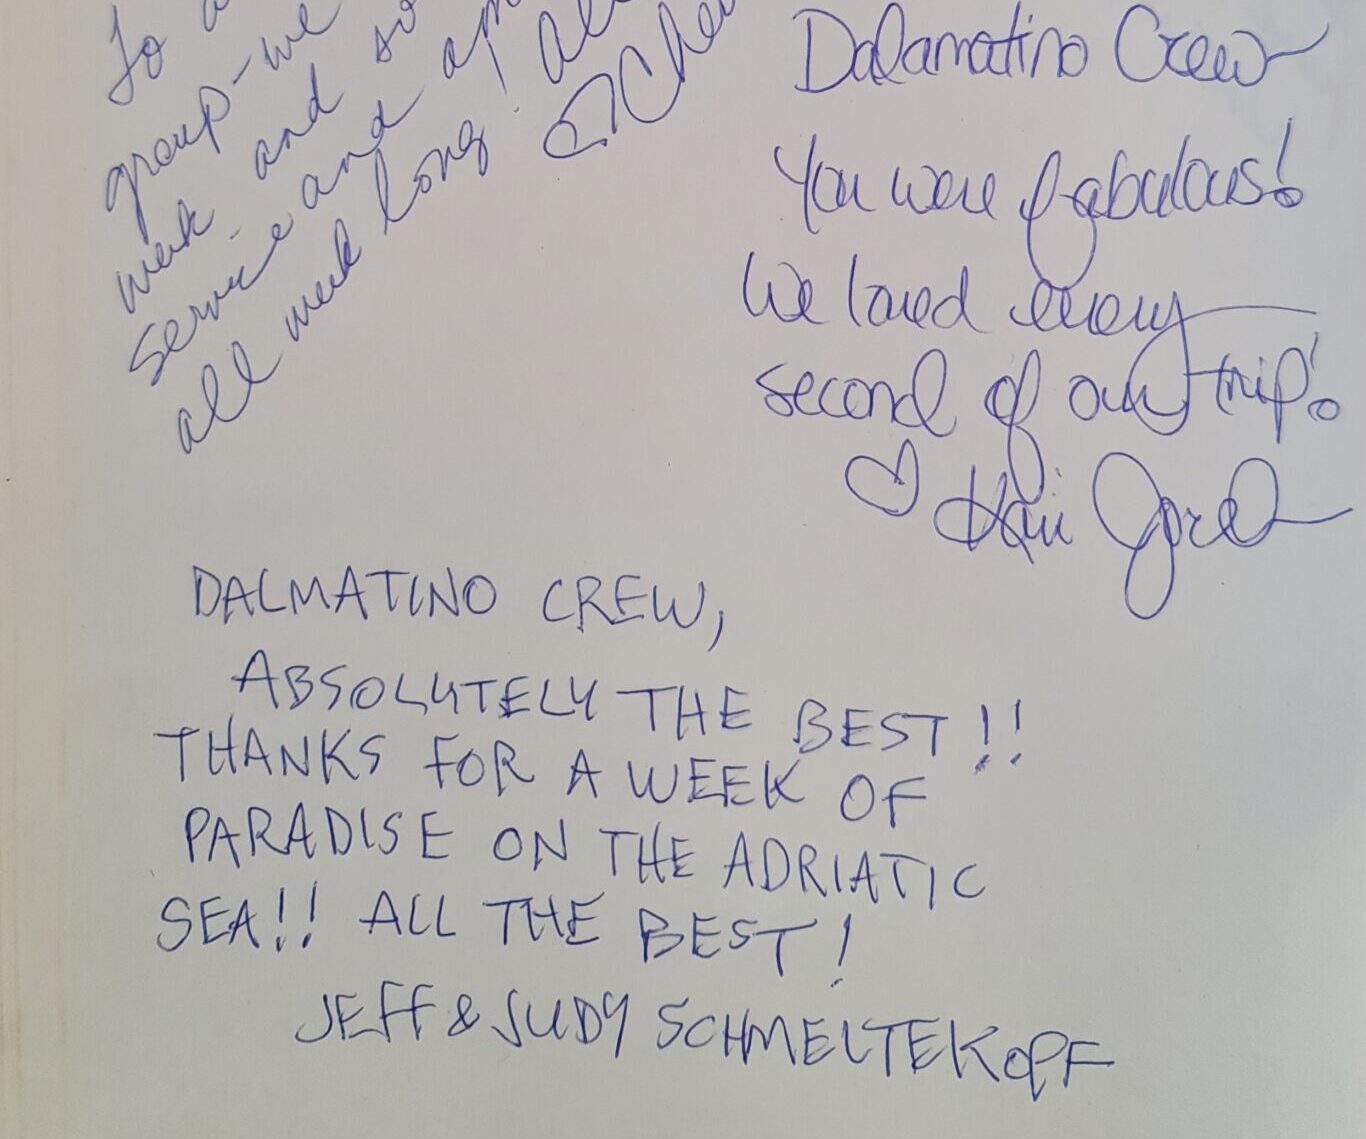 To a
group - we
week and so
service and ap
all week long! All
Dalamatino Crew
You were fabulous!
We loved every
second of our trip!
DALMATINO CREW,
ABSOLUTELY THE BEST!!
THANKS FOR A WEEK OF
PARADISE ON THE ADRIATIC
SEA!! ALL THE BEST!
JEFF & JUDY SCHMELTEKOPF